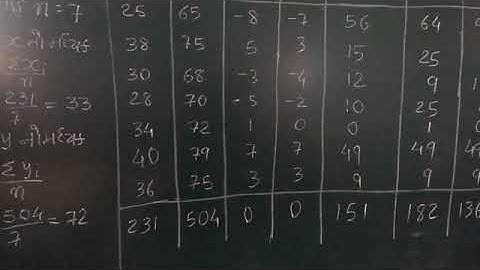 n = 7 25 65 -8 -7 56 64
x ની મધ્યક 38 75 5 3 15 25
Σxi/n 30 68 -3 -4 12 9
231/7 = 33 28 70 -5 -2 10 25
y ની મધ્યક 34 72 1 0 0 1
Σyi/n 40 79 7 7 49 49
36 75 3 3 9 9
504/7 = 72 231 504 0 0 151 182 136